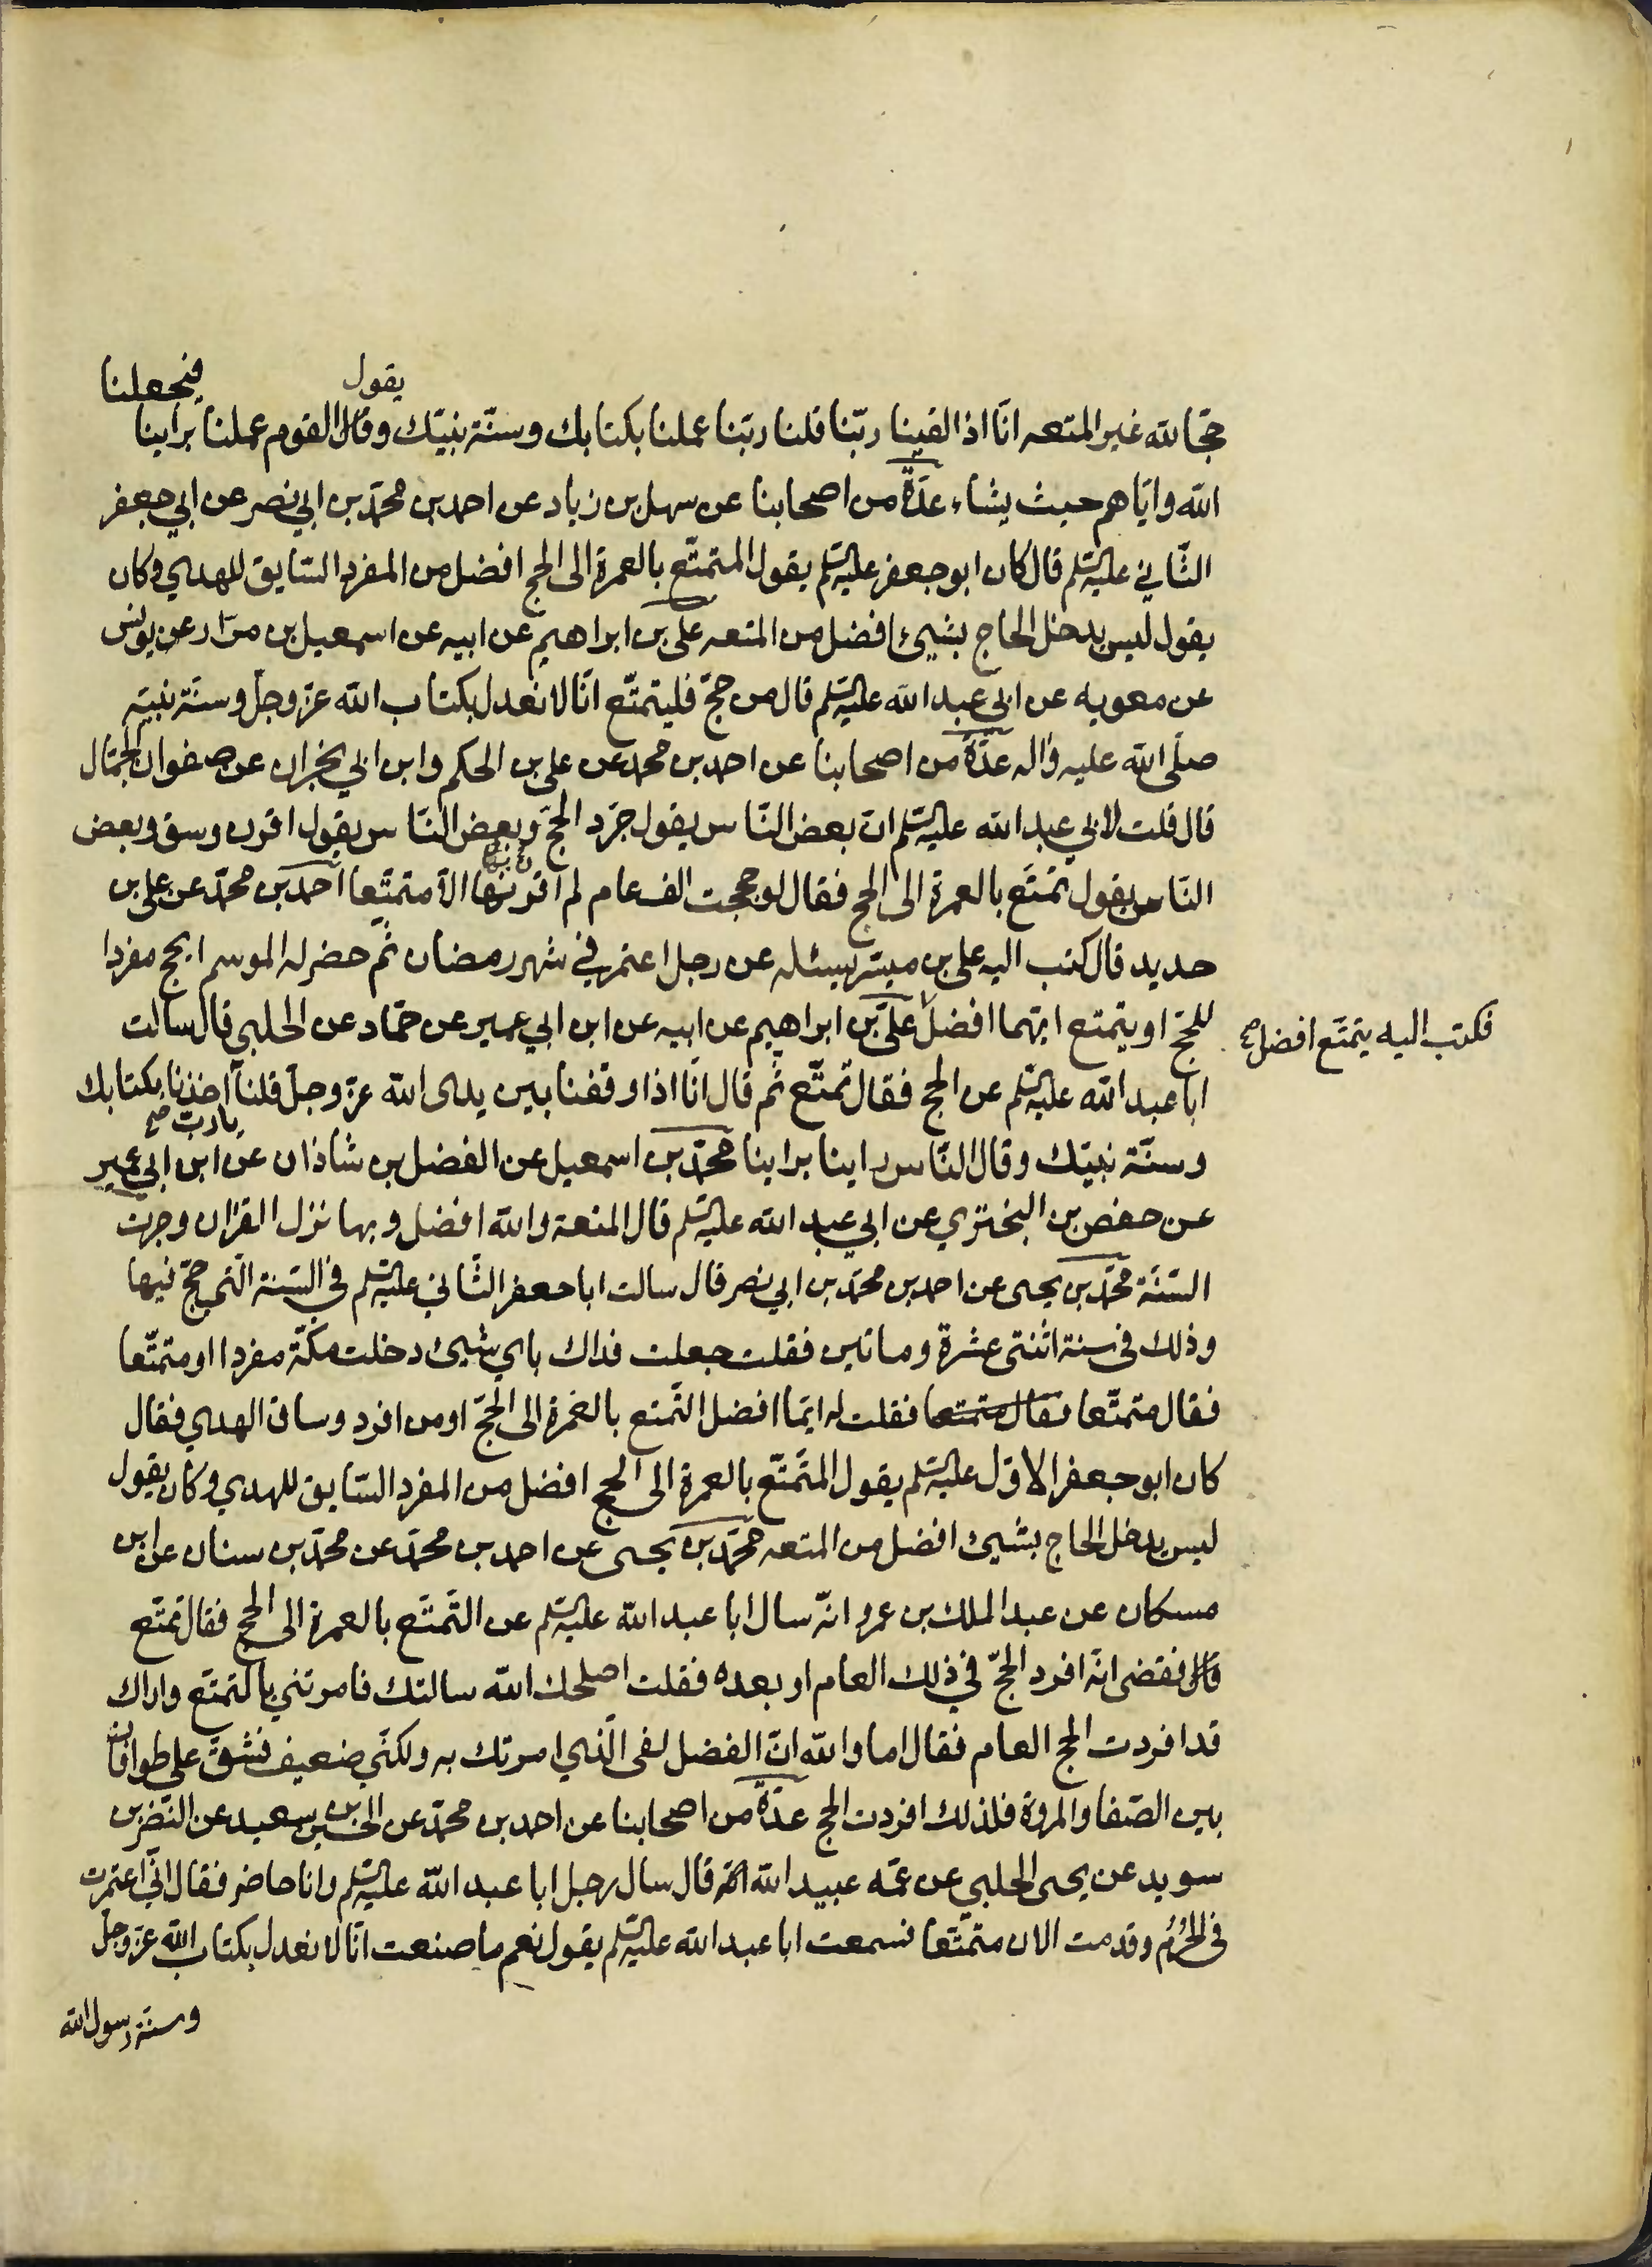 يقول
فيجعلنا
حجّا لله غير المتعه انّا اذا لقينا ربّنا قلنا ربّنا عملنا بكتابك وسنّة نبيّك وقال القوم عملنا براينا
الله وايّاهم حيث يشاء عدّة من اصحابنا عن سهل بن زياد عن احمد بن محمّد بن ابي نصر عن ابي جعفر
الثّاني عليه السّلم قال كان ابو جعفر عليه السّلم يقول المتمتّع بالعمرة الى الحج افضل من المفرد السّايق للهدي وكان
يقول ليس يدخل الحاج بشيئ افضل من المتعه علي بن ابراهيم عن ابيه عن اسمعيل بن مرّار عن يونس
عن معويه عن ابي عبد الله عليه السّلم قال من حجّ فليتمتّع انّا لا نعدل بكتاب الله عزّ وجلّ وسنّة نبيّه
صلّى الله عليه واله عدّة من اصحابنا عن احمد بن محمد عن علي بن الحكم وابن ابي نجران عن صفوان الجمّال
قال قلت لابي عبد الله عليه السّلم انّ بعض النّاس يقول جرّد الحجّ وبعض النّاس يقول اقرن وسق وبعض
النّاس يقول تمتّع بالعمرة الى الحج فقال لو حججت الف عام لم اقربها الّا متمتّعا احمد بن محمّد عن علي بن
حديد قال كتب اليه علي بن ميسّر يسئله عن رجل اعتمر في شهر رمضان ثم حضر له الموسم ايحج مفردا
للحجّ او يتمتع ايّهما افضل علي بن ابراهيم عن ابيه عن ابن ابي عمير عن حمّاد عن الحلبي قال سالت
فكتب اليه يتمتّع افضل صح
ابا عبد الله عليه السّلم عن الحج فقال تمتّع ثم قال انّا اذا وقفنا بين يدى الله عزّ وجلّ قلنا اخذنا بكتابك
يا ربّ صح
وسنّة نبيّك وقال النّاس راينا براينا محمّد بن اسمعيل عن الفضل بن شاذان عن ابن ابي عمير
عن حفص بن البختري عن ابي عبد الله عليه السّلم قال المتعة والله افضل وبها نزل القران وجرت
السّنّة محمّد بن يحيى عن احمد بن محمّد بن ابي نصر قال سالت ابا جعفر الثّاني عليه السّلم في السّنة الّتي حجّ فيها
وذلك في سنة اثنتى عشرة وماتين فقلت جعلت فداك باي شيئ دخلت مكّة مفردا او متمتّعا
فقال متمتّعا فقال متمتعا فقلت له ايّما افضل التّمتع بالعمرة الى الحجّ او من افرد وساق الهدي فقال
كان ابو جعفر الاوّل عليه السّلم يقول المتمتّع بالعمرة الى الحج افضل من المفرد السّايق للهدي وكان يقول
ليس يدخل الحاج بشيئ افضل من المتعه محمّد بن يحيى عن احمد بن محمّد عن محمّد بن سنان عن ابن
مسكان عن عبد الملك بن عمرو انّه سال ابا عبد الله عليه السّلم عن التّمتّع بالعمرة الى الحج فقال تمتّع
قال فقضى انّه افرد الحجّ في ذلك العام او بعده فقلت اصلحك الله سالتك فامرتني بالتمتّع واراك
قد افردت الحج العام فقال اما والله انّ الفضل لفى الّذي امرتك به ولكنّي ضعيف فشقّ علي طوافان
بين الصّفا والمروة فلذلك افردت الحج عدّة من اصحابنا عن احمد بن محمّد عن الحسين بن سعيد عن النّضر بن
سويد عن يحيى الحلبي عن عمّه عبيد الله انّه قال سال رجل ابا عبد الله عليه السّلم وانا حاضر فقال انّي اعتمرت
في الحرم وقدمت الان متمتّعا فسمعت ابا عبد الله عليه السّلم يقول نعم ما صنعت انّا لا نعدل بكتاب الله عزّ وجلّ
وسنّة رسول الله